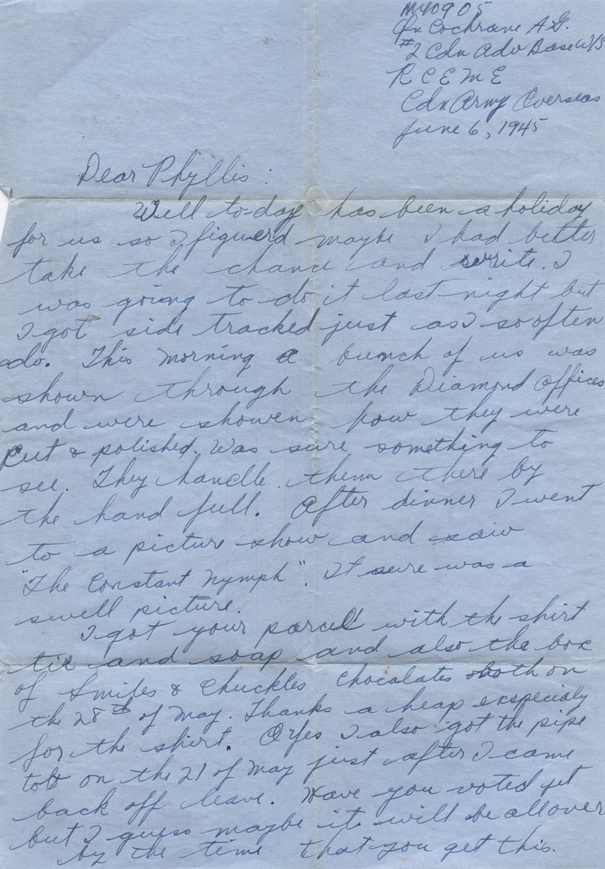 M40905
Cfn Cochrane A.G.
#2 Cdn Adv Base W/S
R C E M E
Cdn Army Overseas
June 6, 1945
Dear Phyllis:
Well to-day has been a holiday
for us so I figuerd maybe I had better
take the chance and write. I
was going to do it last night but
I got side tracked just as I so often
do. This morning a bunch of us was
shown through the Diamond Offices
and were showen how they were
cut & polished. Was sure something to
see. They handle them there by
the hand full. After dinner I went
to a picture show and saw
"The Constant Nymph". It sure was a
swell picture.
I got your parcel with the shirt
tie and soap and also the box
of Smiles & Chuckles Chocalates both on
the 28th of May. Thanks a heap exspecialy
for the shirt. O yes I also got the pipe
tob on the 21 of May just after I came
back off leave. Have you voted yet
but I guess maybe it will be all over
by the time that you get this.